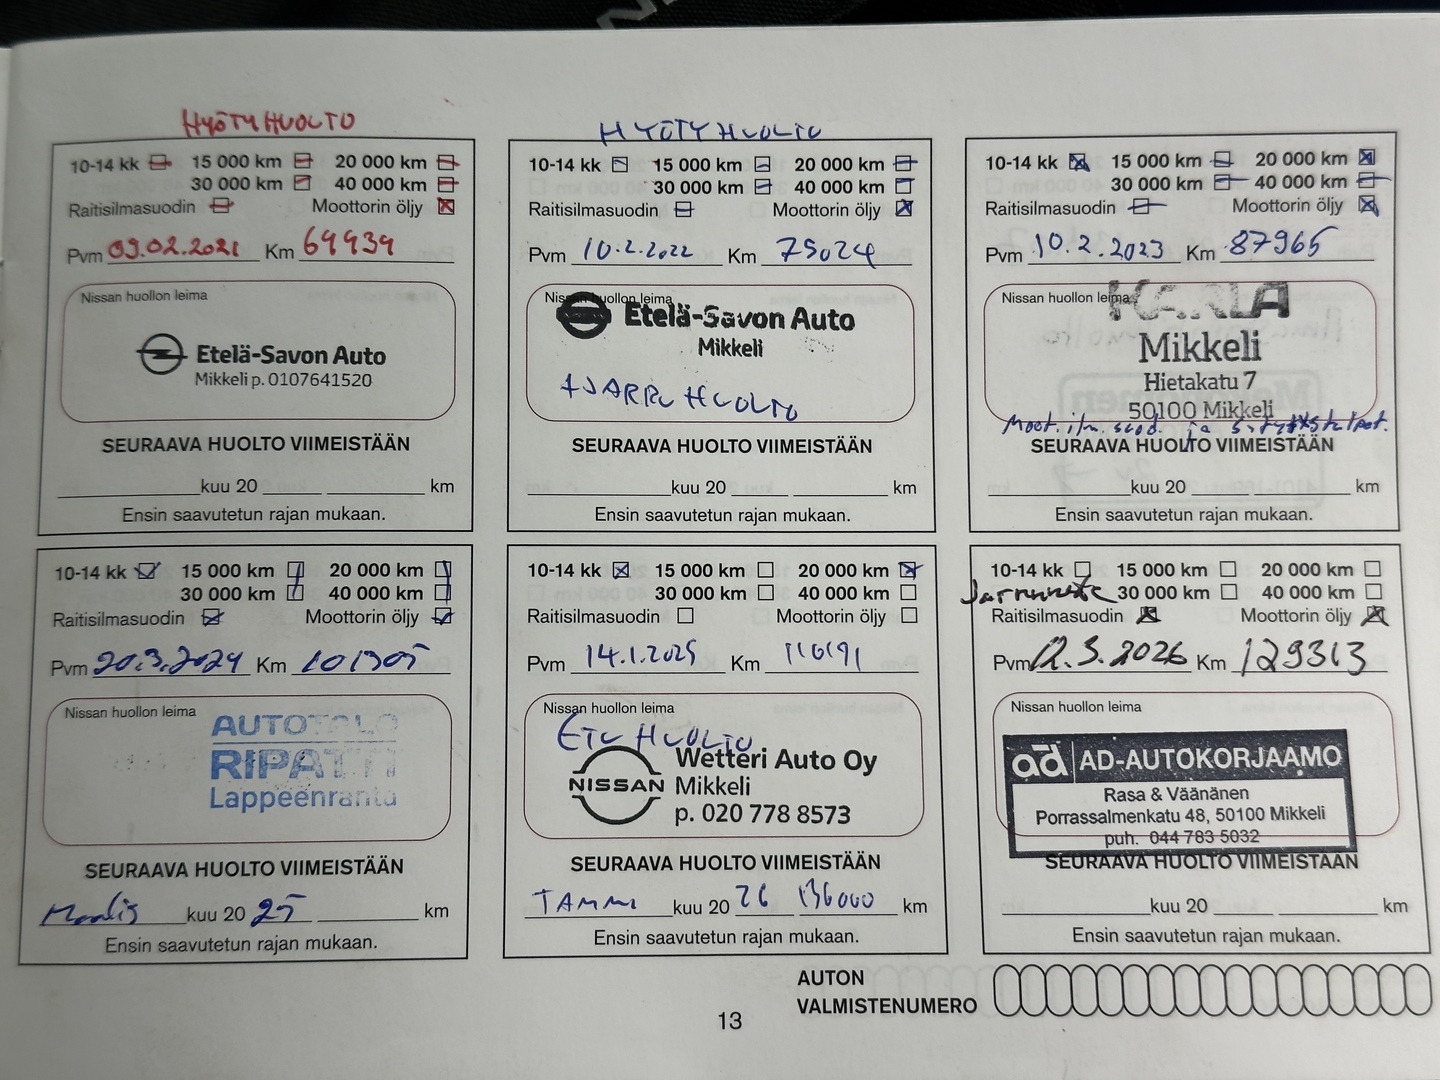 HYÖTYHUOLTO
10-14 kk 15 000 km 20 000 km
30 000 km 40 000 km
Raitisilmasuodin Moottorin öljy
Pvm 09.02.2021 Km 69939
Nissan huollon leima
Etelä-Savon Auto
Mikkeli p. 0107641520
SEURAAVA HUOLTO VIIMEISTÄÄN
kuu 20 km
Ensin saavutetun rajan mukaan.
HYÖTYHUOLTO
10-14 kk 15 000 km 20 000 km
30 000 km 40 000 km
Raitisilmasuodin Moottorin öljy
Pvm 10.2.2022 Km 75024
Nissan huollon leima
Etelä-Savon Auto
Mikkeli
+JARRUHUOLTO
SEURAAVA HUOLTO VIIMEISTÄÄN
kuu 20 km
Ensin saavutetun rajan mukaan.
10-14 kk 15 000 km 20 000 km
30 000 km 40 000 km
Raitisilmasuodin Moottorin öljy
Pvm 10.2.2023 Km 87965
Nissan huollon leima
Mikkeli
Hietakatu 7
50100 Mikkeli
Moot. ilm. suod. ja sytytystulpat.
SEURAAVA HUOLTO VIIMEISTÄÄN
kuu 20 km
Ensin saavutetun rajan mukaan.
10-14 kk 15 000 km 20 000 km
30 000 km 40 000 km
Raitisilmasuodin Moottorin öljy
Pvm 20.3.2024 Km 101305
Nissan huollon leima
AUTOTALO
RIPATTI
Lappeenranta
SEURAAVA HUOLTO VIIMEISTÄÄN
Maalis kuu 20 25 km
Ensin saavutetun rajan mukaan.
10-14 kk 15 000 km 20 000 km
30 000 km 40 000 km
Raitisilmasuodin Moottorin öljy
Pvm 14.1.2025 Km 116191
Nissan huollon leima
ETU HUOLTO
NISSAN
Wetteri Auto Oy
Mikkeli
p. 020 778 8573
SEURAAVA HUOLTO VIIMEISTÄÄN
TAMMI kuu 20 26 136000 km
Ensin saavutetun rajan mukaan.
10-14 kk 15 000 km 20 000 km
Jarruneste 30 000 km 40 000 km
Raitisilmasuodin Moottorin öljy
Pvm 12.3.2026 Km 129313
Nissan huollon leima
ad AD-AUTOKORJAAMO
Rasa & Väänänen
Porrassalmenkatu 48, 50100 Mikkeli
puh. 044 783 5032
SEURAAVA HUOLTO VIIMEISTÄÄN
kuu 20 km
Ensin saavutetun rajan mukaan.
AUTON
VALMISTENUMERO
13